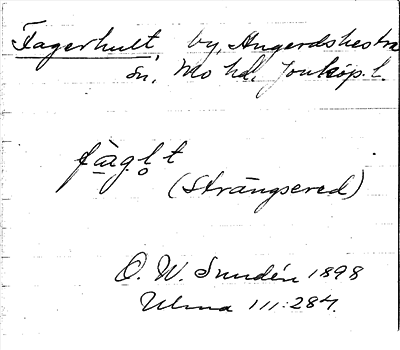 Fagerhult, by, Angerdshestra
sn, Mo hd. Jönköp. l.
fàglt
(Strängsered)
O. W. Sundén 1898
Ulma 111:284.